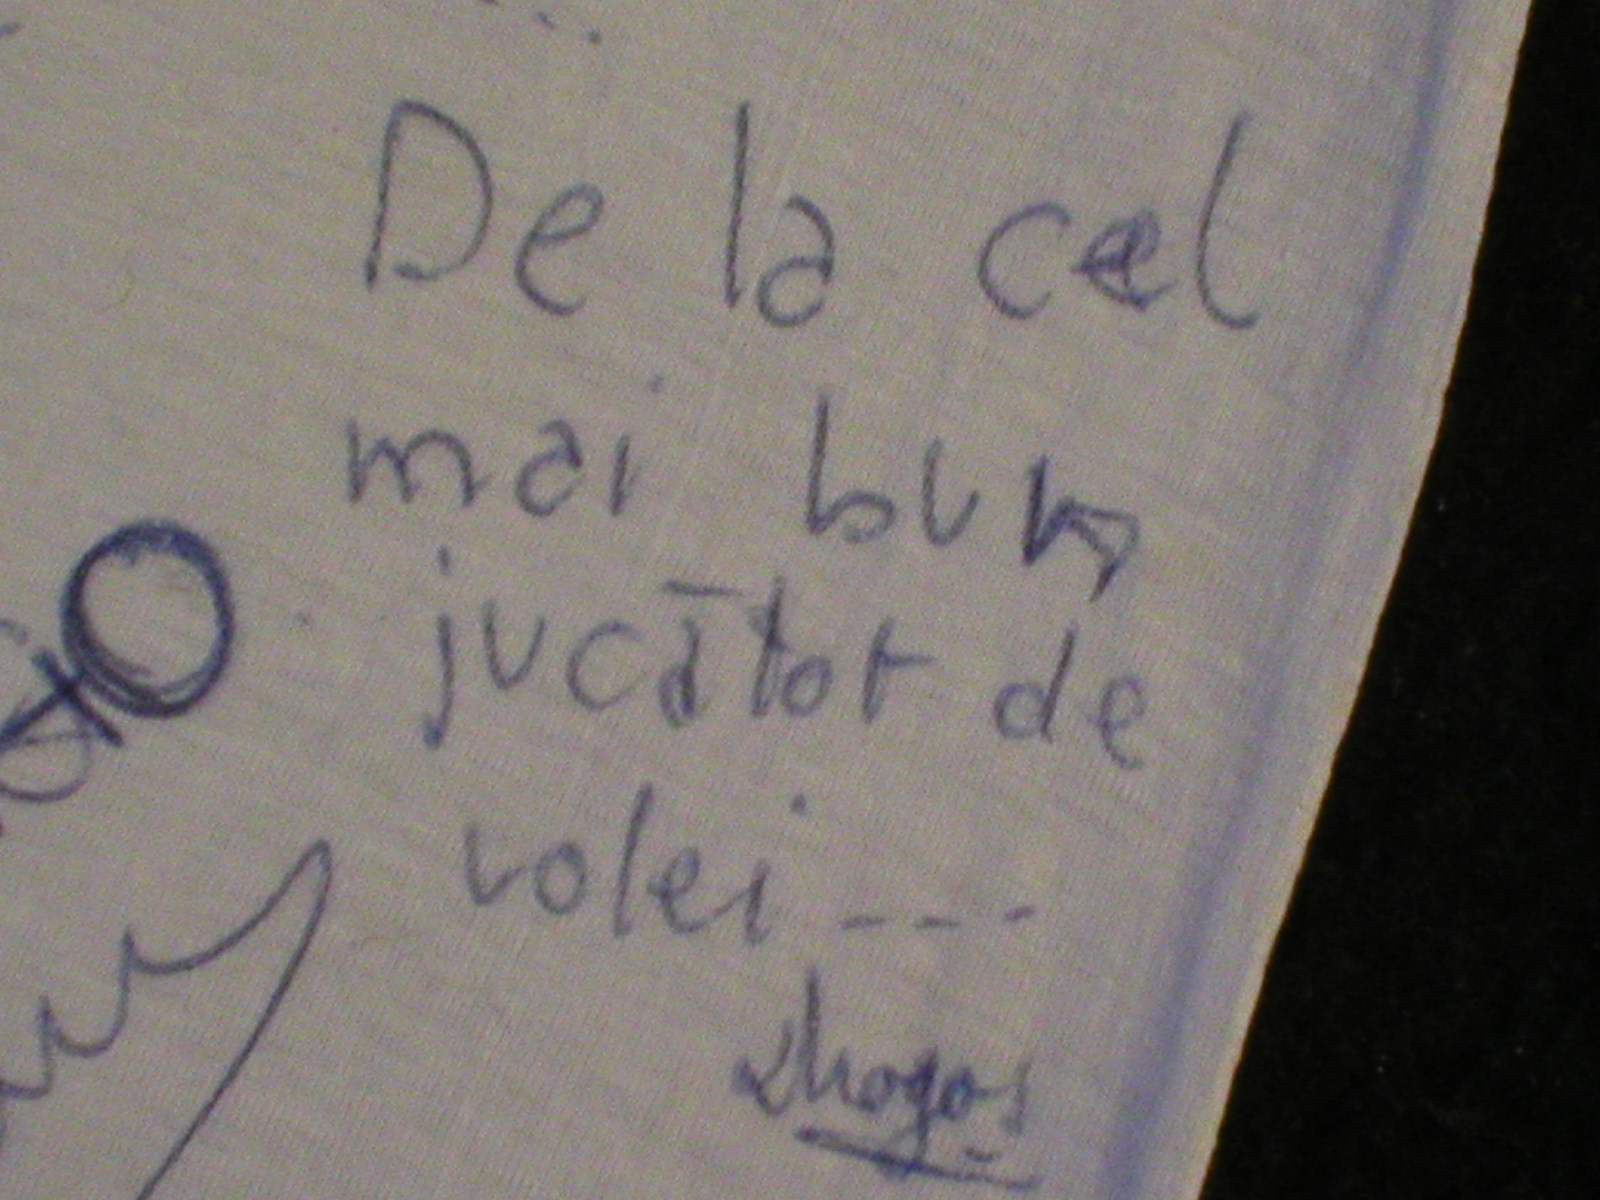 De la cel
mai bun
jucător de
volei ---